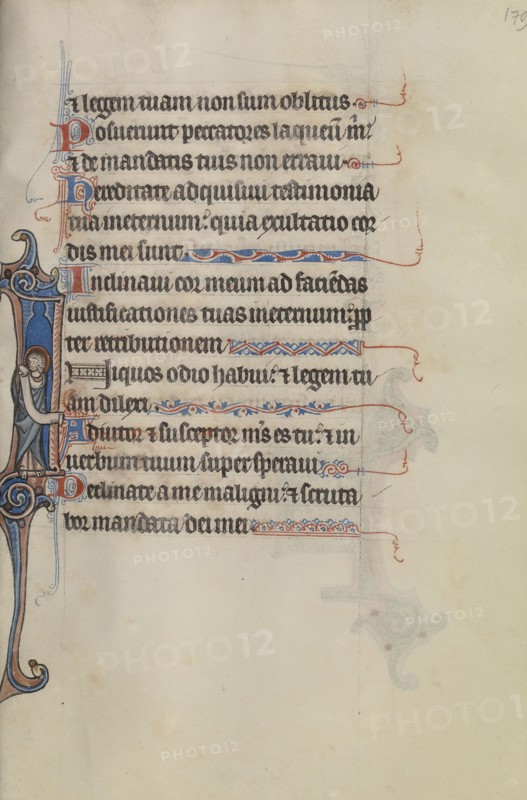 179
⁊ legem tuam non sum oblitus.
Posuerunt peccatores laqueū m̄
⁊ de mandatis tuis non erraui.
Hereditate adquisiui testimonia
tua ineternum: quia exultatio cor
dis mei sunt.
Inclinaui cor meum ad faciēdas
iustificationes tuas ineternum: ꝓp
ter retributionem
Iniquos odio habui: ⁊ legem tu
am dilexi.
Adiutor ⁊ susceptor m̄s es tu: ⁊ in
uerbum tuum supersperaui
Declinate a me maligni: ⁊ scruta
bor mandata dei mei
PHOTO12